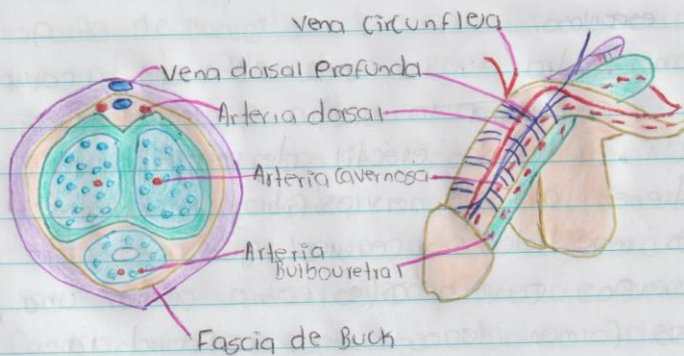 Vena Circunfleja
Vena dorsal Profunda
Arteria dorsal
Arteria Cavernosa
Arteria
Bulbouretral
Fascia de Buck